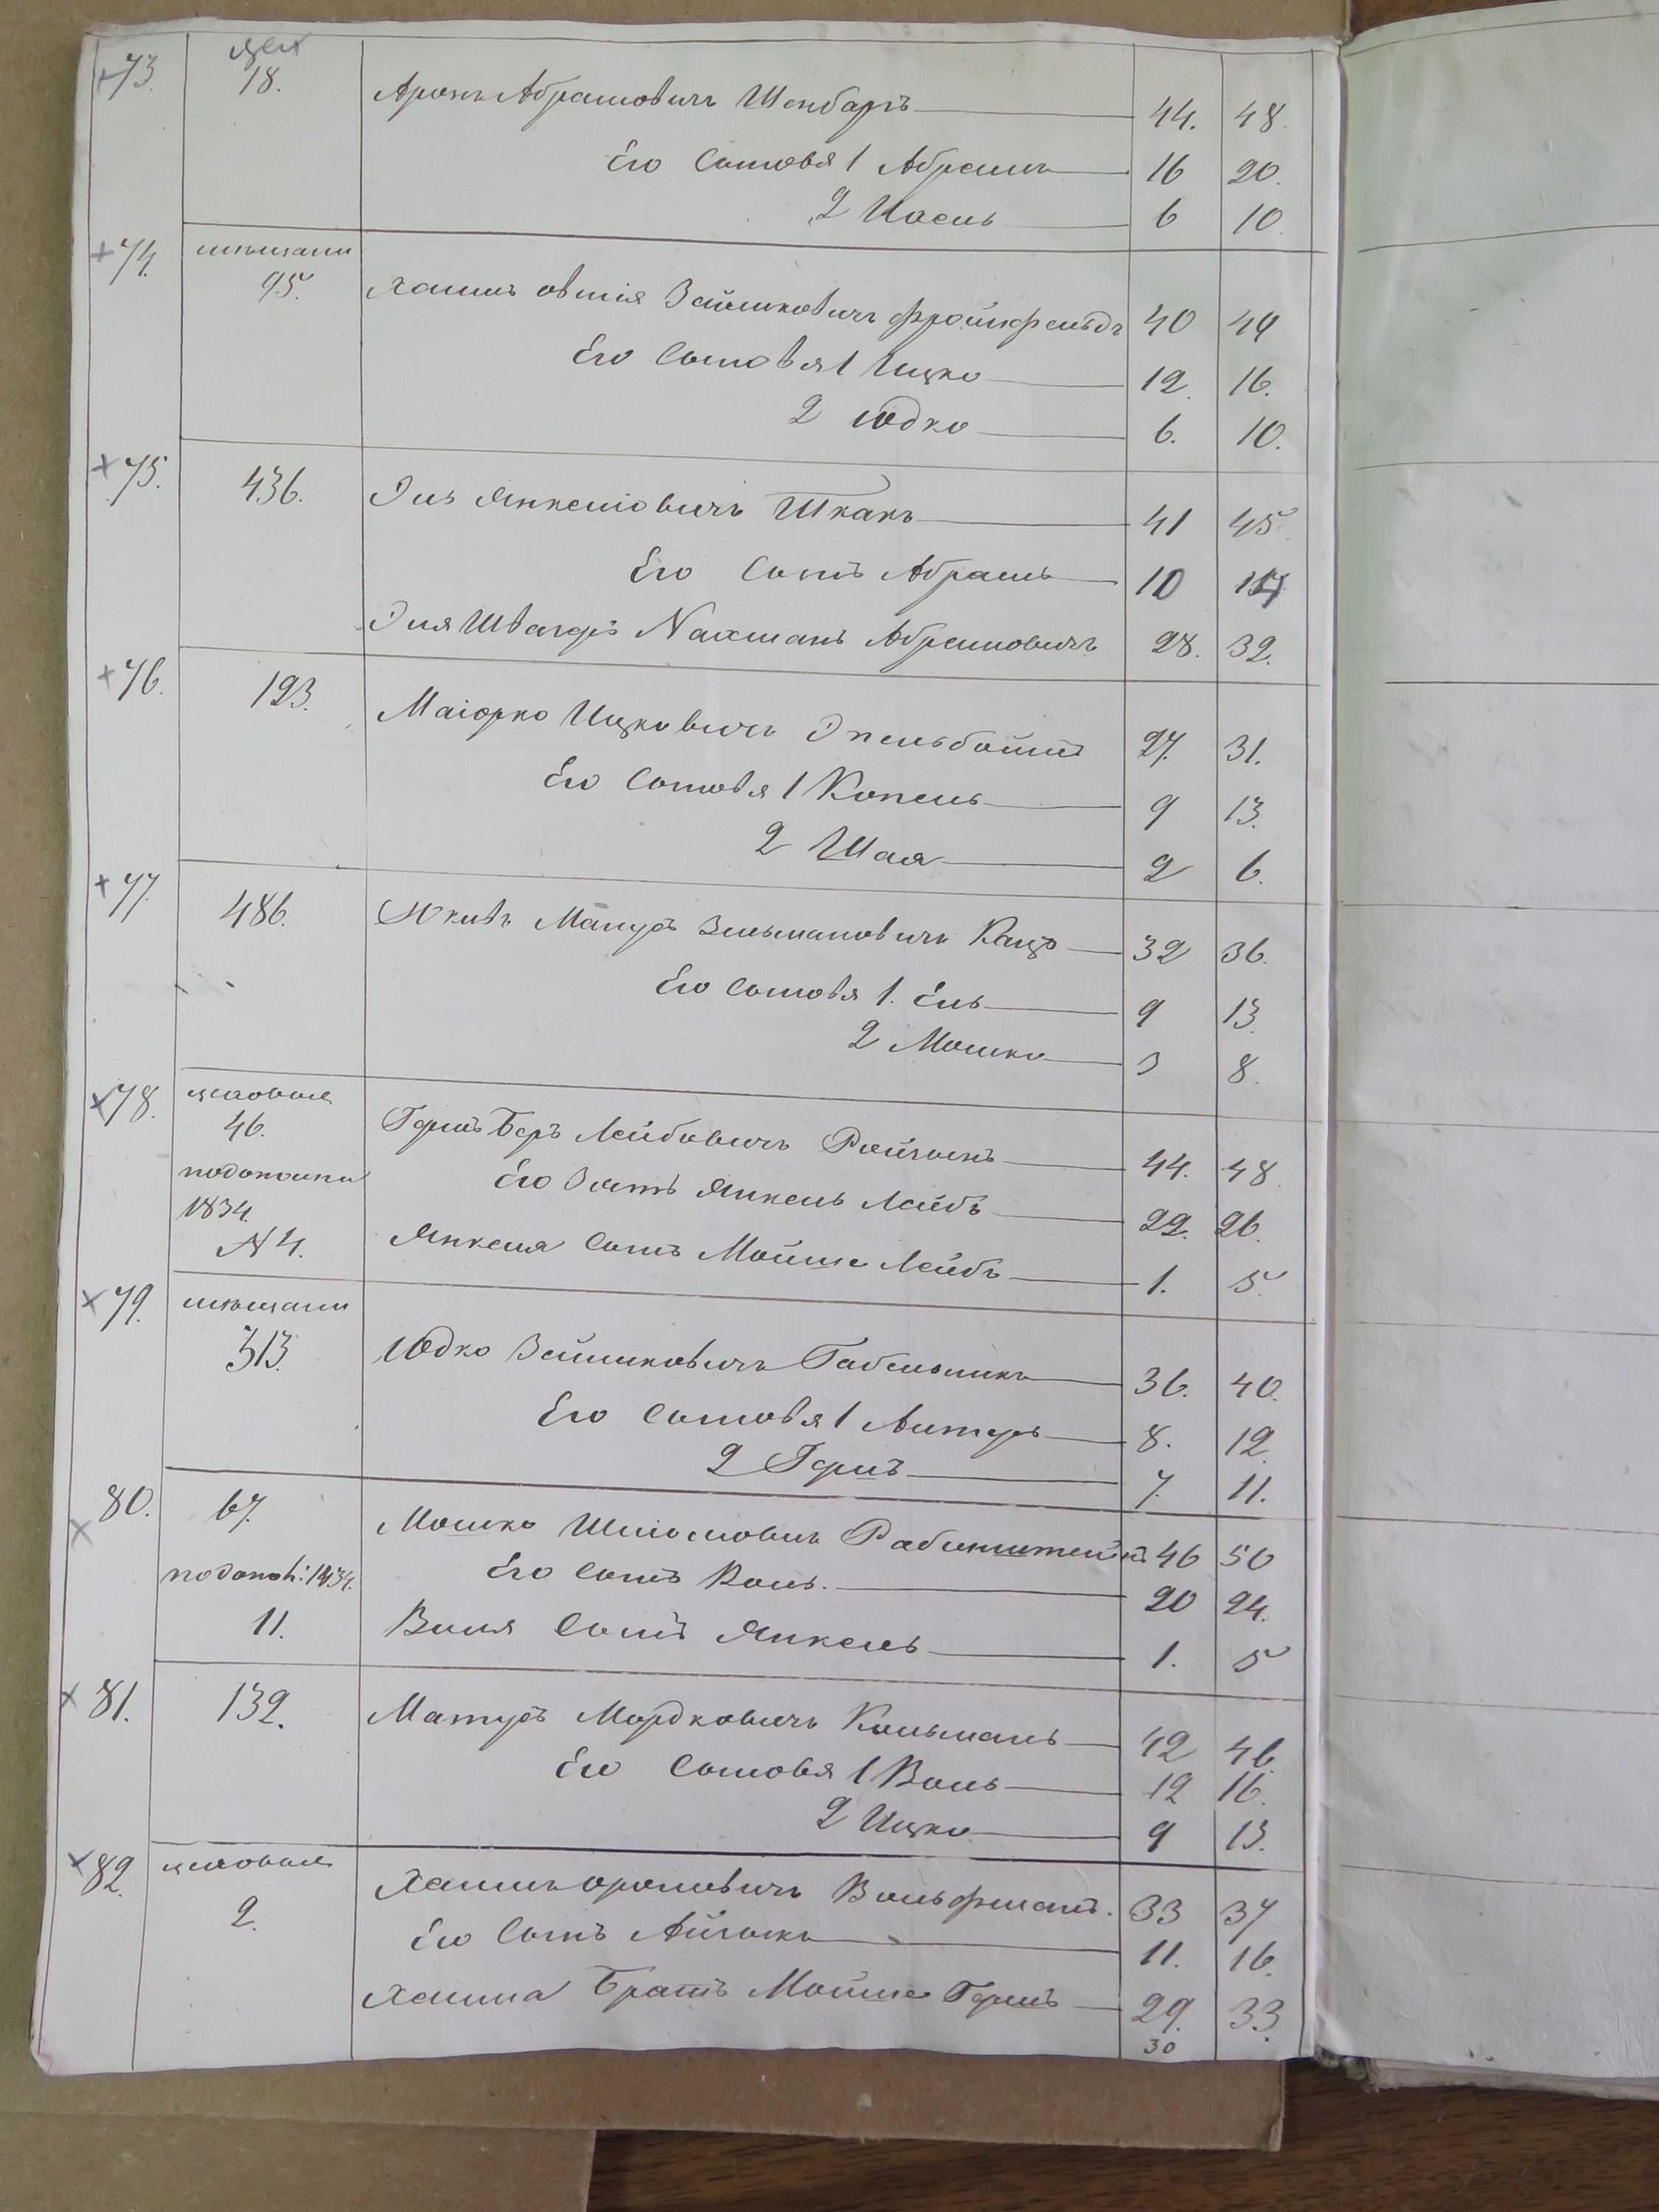 цех
+73. 18. Аронъ Абрамовичъ Шенбаръ 44. 48.
Его Сыновья 1 Абрамъ 16 20.
2 Иосель 6 10.
+74. мѣщани
95. Хаимъ овшія Зейликовичъ Фройнфельдъ 40 44
Его Сыновья 1 Ицко 12. 16.
2 Юдко 6. 10.
+75. 436. Эль Янкелювичъ Шкакъ 41 45.
Его Сынъ Абрамъ 10 14
Эля Швагеръ Нахманъ Абрамовичъ 28. 32.
+76. 123. Маіорко Ицковичъ Эпельбоймъ 27. 31.
Его Сыновья 1 Копель 9 13.
2 Шая 2 6.
+77. 486. Якивъ Манусъ Зельмановичъ Кацъ 32 36.
Его Сыновья 1. Ель 9 13.
2 Мошко 3 8.
×78. цеховые
46. Гершъ Беръ Лейбовичъ Ройзенъ 44. 48.
подополни Его Зять Янкель Лейбъ 22. 26.
1834.
N 4. Янкеля Сынъ Мойше Лейбъ 1. 5.
×79. мѣщани
313. Юдко Зейликовичъ Габельникъ 36. 40.
Его Сыновья 1 Алтеръ 8. 12.
2 Гершъ 7. 11.
×80. 67. Мошко Шліомовичъ Рабинштейнъ 46 50
подополн: 1834. Его Сынъ Воль. 20 24.
11. Воля Сынъ Янкель 1. 5
×81. 132. Матусъ Мордковичъ Кельманъ 42 46.
Его Сыновья 1 Воль 12 16.
2 Ицко 9 13.
×82. цеховые
2. Хаимъ ороновичъ Вольфманъ. 33 37
Его Сынъ Айзыкъ 11. 16.
Хаима Братъ Мойше Гершъ 29. 33.
30